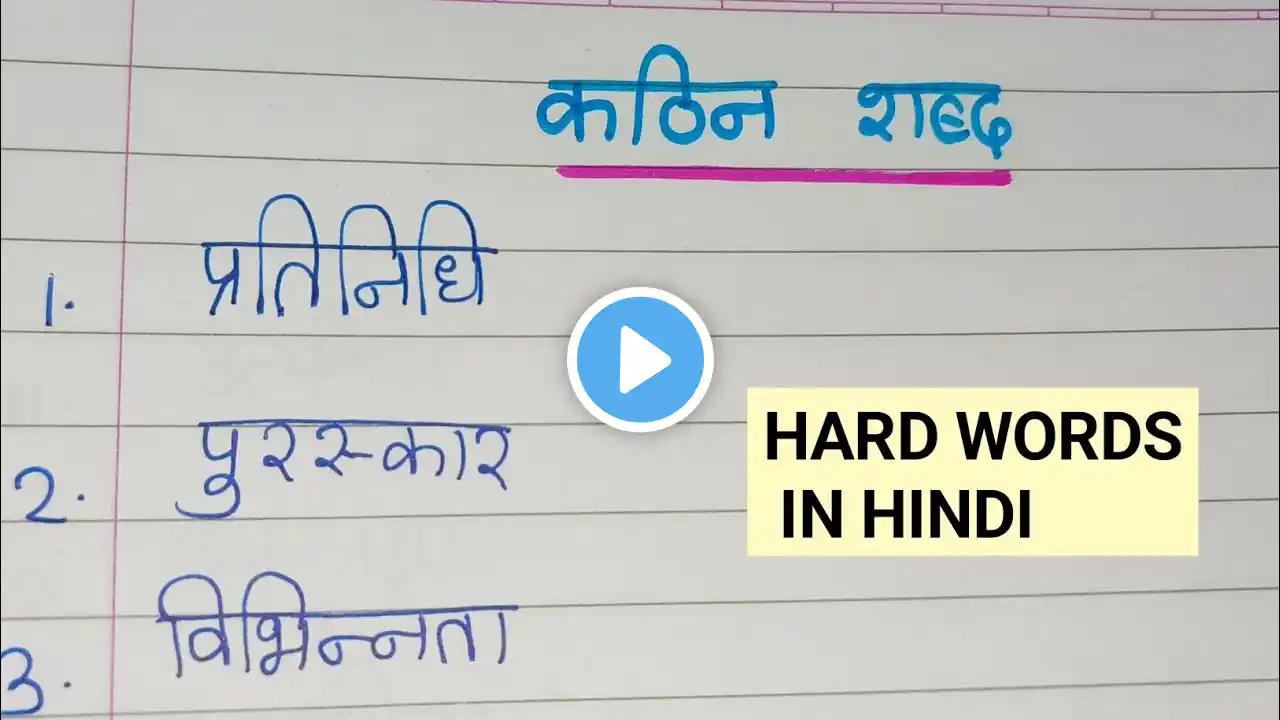 कठिन शब्द
1. प्रतिनिधि
2. पुरस्कार
HARD WORDS
IN HINDI
3. विभिन्नता